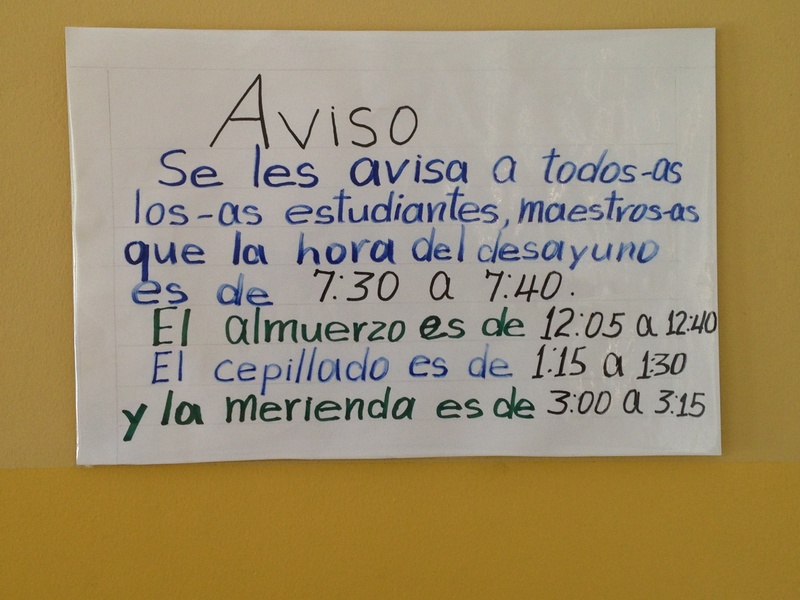 Aviso
Se les avisa a todos-as
los-as estudiantes, maestros-as
que la hora del desayuno
es de 7:30 a 7:40.
El almuerzo es de 12:05 a 12:40
El cepillado es de 1:15 a 1:30
y la merienda es de 3:00 a 3:15